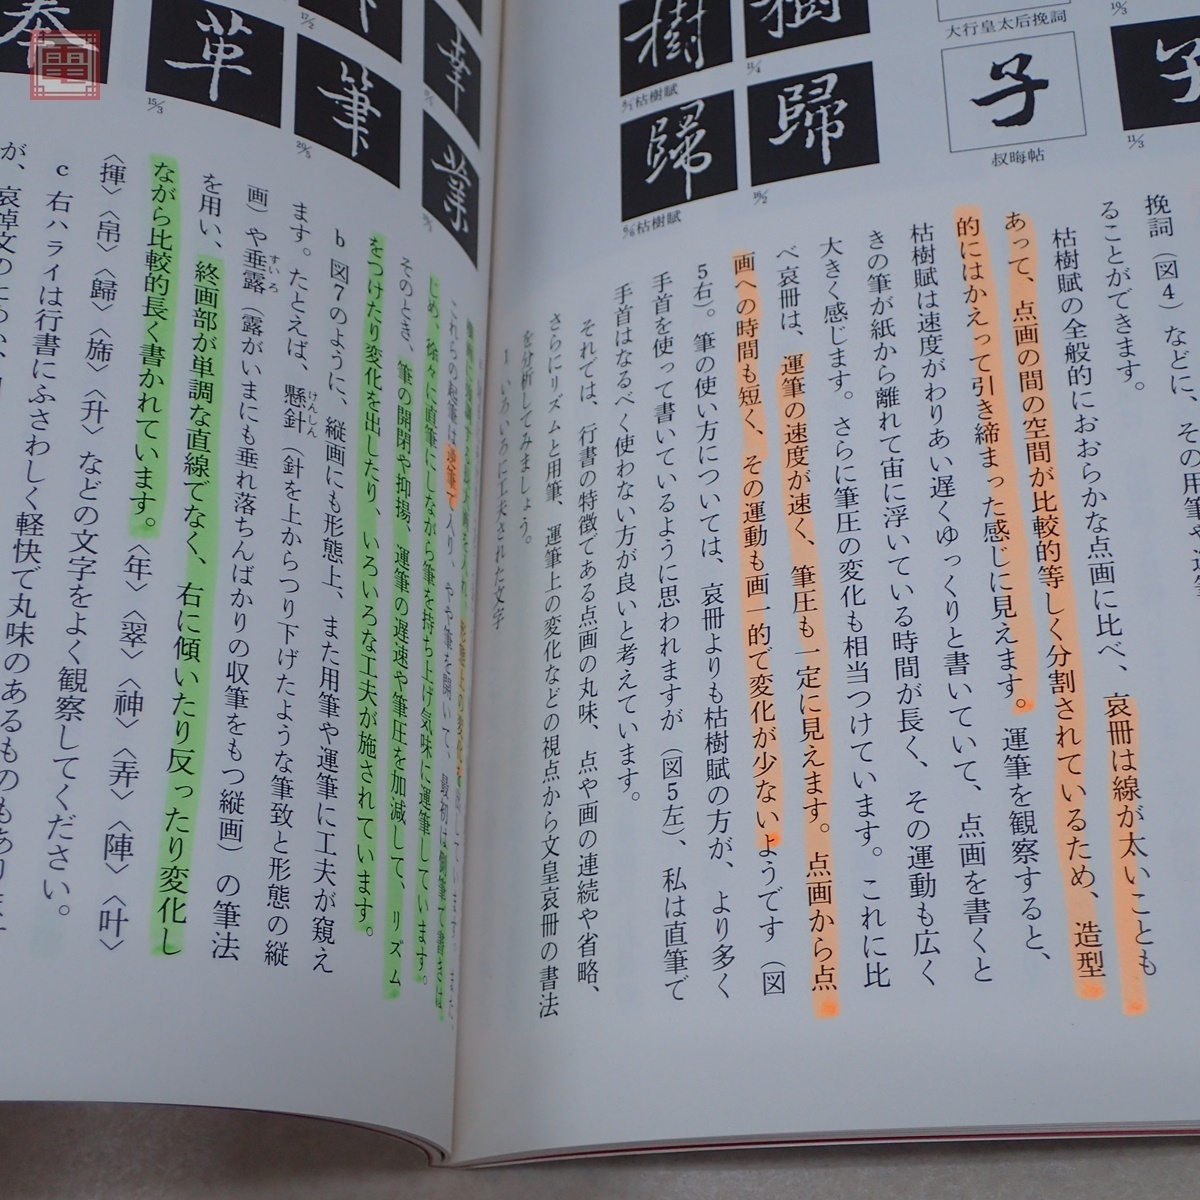 樹
6/1枯樹賦
樹
17/4
歸
8/8枯樹賦
歸
16/2
大行皇太后挽詞
子
叔晦帖
子
11/3
19/3
挽詞（図4）などに、その用筆や
ることができます。
枯樹賦の全般的におおらかな点画に比べ、哀冊は線が太いことも
あって、点画の間の空間が比較的等しく分割されているため、造型
的にはかえって引き締まった感じに見えます。運筆を観察すると、
枯樹賦は速度がわりあい遅くゆっくりと書いていて、点画を書くと
きの筆が紙から離れて宙に浮いている時間が長く、その運動も広く
大きく感じます。さらに筆圧の変化も相当つけています。これに比
べ哀冊は、運筆の速度が速く、筆圧も一定に見えます。点画から点
画への時間も短く、その運動も画一的で変化が少ないようです（図
5右）。筆の使い方については、哀冊よりも枯樹賦の方が、より多く
手首を使って書いているように思われますが（図5左）、私は直筆で
手首はなるべく使わない方が良いと考えています。
それでは、行書の特徴である点画の丸味、点や画の連続や省略、
さらにリズムと用筆、運筆上の変化などの視点から文皇哀冊の書法
を分析してみましょう。
1　いろいろに工夫された文字
幸
業
筆
20/5
革
15/3
17/2
これらの起筆は逆筆で入り、やや筆を開いて、最初は側筆で書きは
じめ、徐々に直筆にしながら筆を持ち上げ気味に運筆しています。
そのとき、筆の開閉や抑揚、運筆の遅速や筆圧を加減して、リズム
をつけたり変化を出したり、いろいろな工夫が施されています。
b　図7のように、縦画にも形態上、また用筆や運筆に工夫が窺え
ます。たとえば、懸針（針を上からつり下げたような筆致と形態の縦
けんしん
画）や垂露（露がいまにも垂れ落ちんばかりの収筆をもつ縦画）の筆法
すいろ
を用い、終画部が単調な直線でなく、右に傾いたり反ったり変化し
ながら比較的長く書かれています。〈年〉〈翠〉〈神〉〈弄〉〈陣〉〈叶〉
〈揮〉〈帛〉〈歸〉〈旆〉〈升〉などの文字をよく観察してください。
c　右ハライは行書にふさわしく軽快で丸味のあるものもあります
電